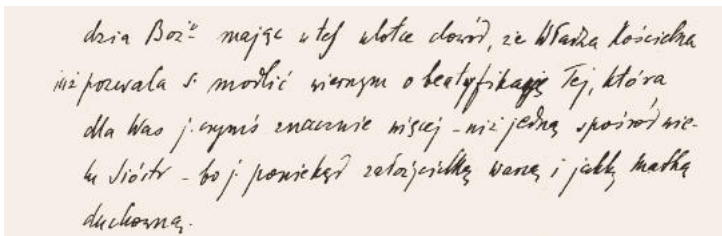 dzia Boż° mając w tej ulotce dowód, że Władza Kościelna
już pozwala s. modlić wiernym o beatyfikację Tej, która
dla Was j. czymś znacznie więcej – niż jedną spośród wie-
lu Sióstr – bo j. poniekąd założycielką waszą i jakby matką
duchowną.